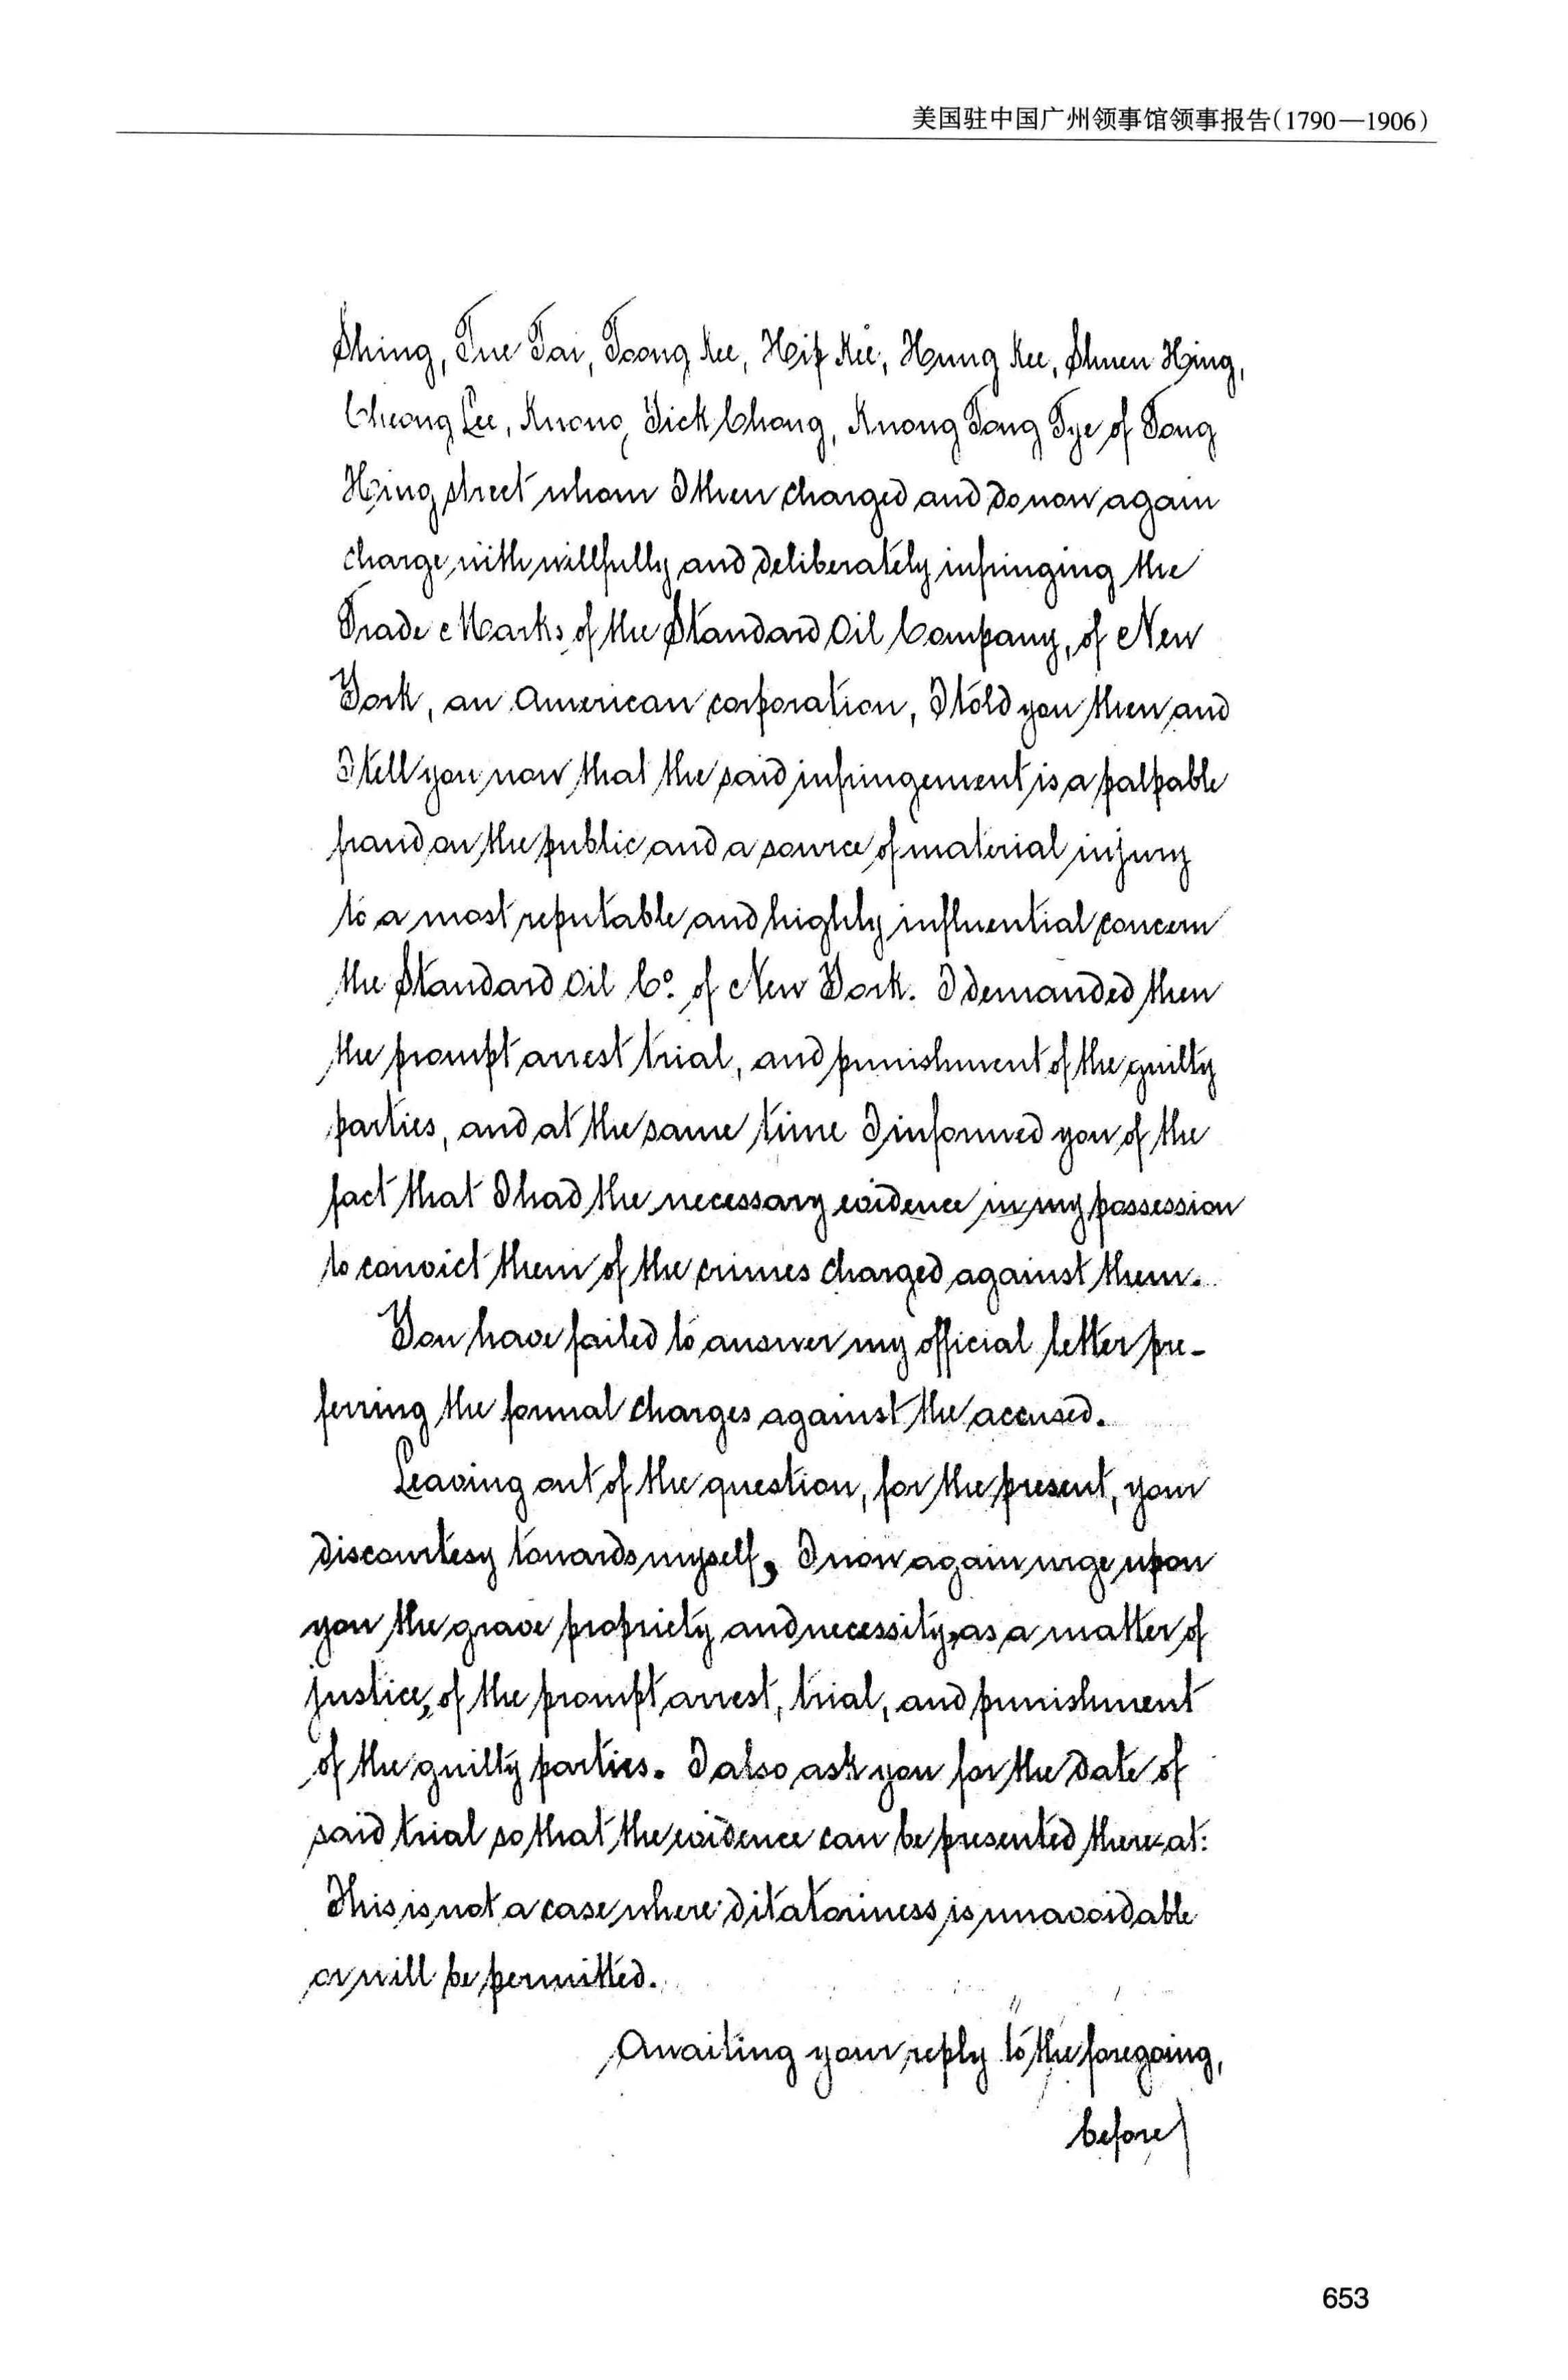 美国驻中国广州领事馆领事报告(1790—1906)
Shing, Tue Tai, Toong Kee, Hip Kee, Hung Kee, Shuen Hing,
Cheong Lee, Kwong Tick Chong, Kwong Tong Tye of Tong
Hing street whom I then charged and do now again
charge with willfully and deliberately infringing the
Trade Marks of the Standard Oil Company, of New
York, an American corporation, I told you then and
I tell you now that the said infringement is a palpable
fraud on the public and a source of material injury
to a most reputable and highly influential concern
the Standard Oil Co. of New York. I demanded then
the prompt arrest trial, and punishment of the guilty
parties, and at the same time I informed you of the
fact that I had the necessary evidence in my possession
to convict them of the crimes charged against them.
You have failed to answer my official letter pre-
ferring the formal charges against the accused.
Leaving out of the question, for the present, your
discourtesy towards myself, I now again urge upon
you the grave propriety and necessity, as a matter of
justice, of the prompt arrest, trial, and punishment
of the guilty parties. I also ask you for the date of
said trial so that the evidence can be presented thereat:
This is not a case where dilatoriness is unavoidable
or will be permitted.
Awaiting your reply to the foregoing,
before
653